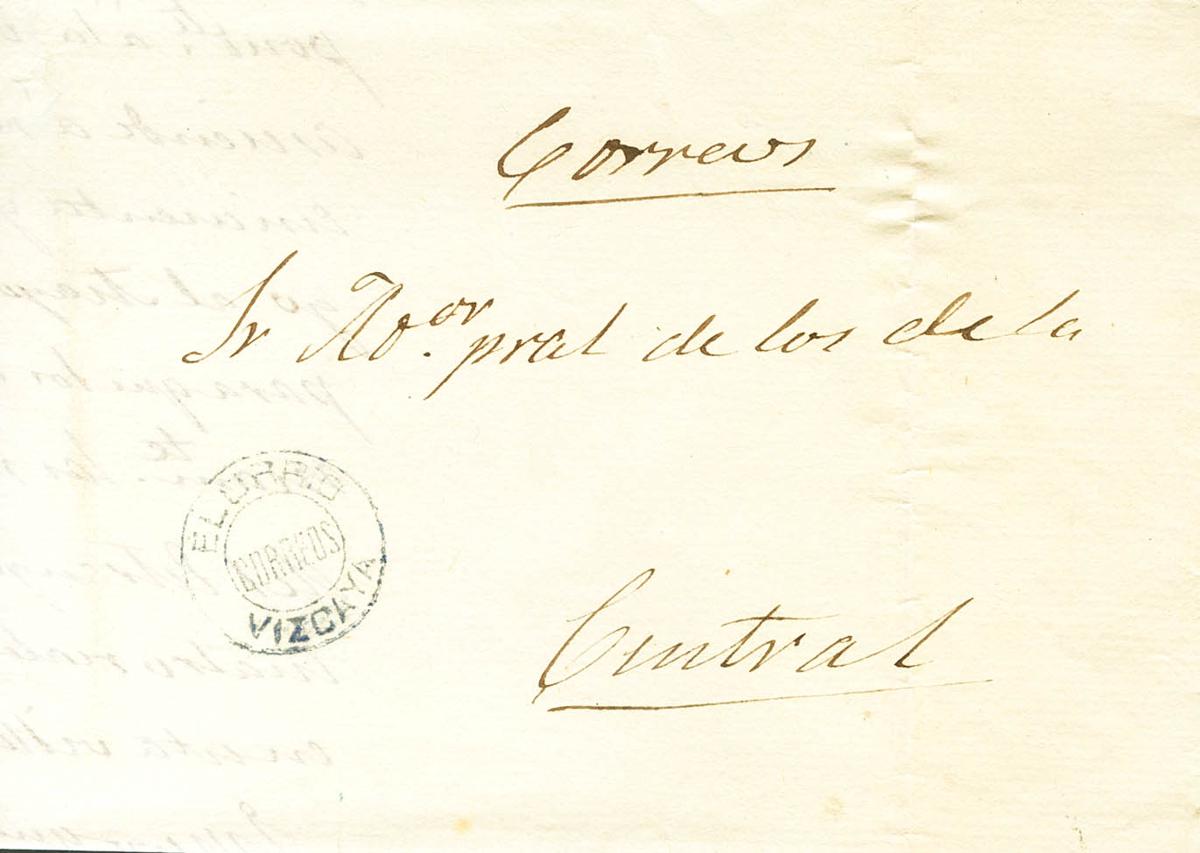 Correos
Sr Ad.or pral de los de la
ELORRIO
CORREOS
VIZCAYA
Central